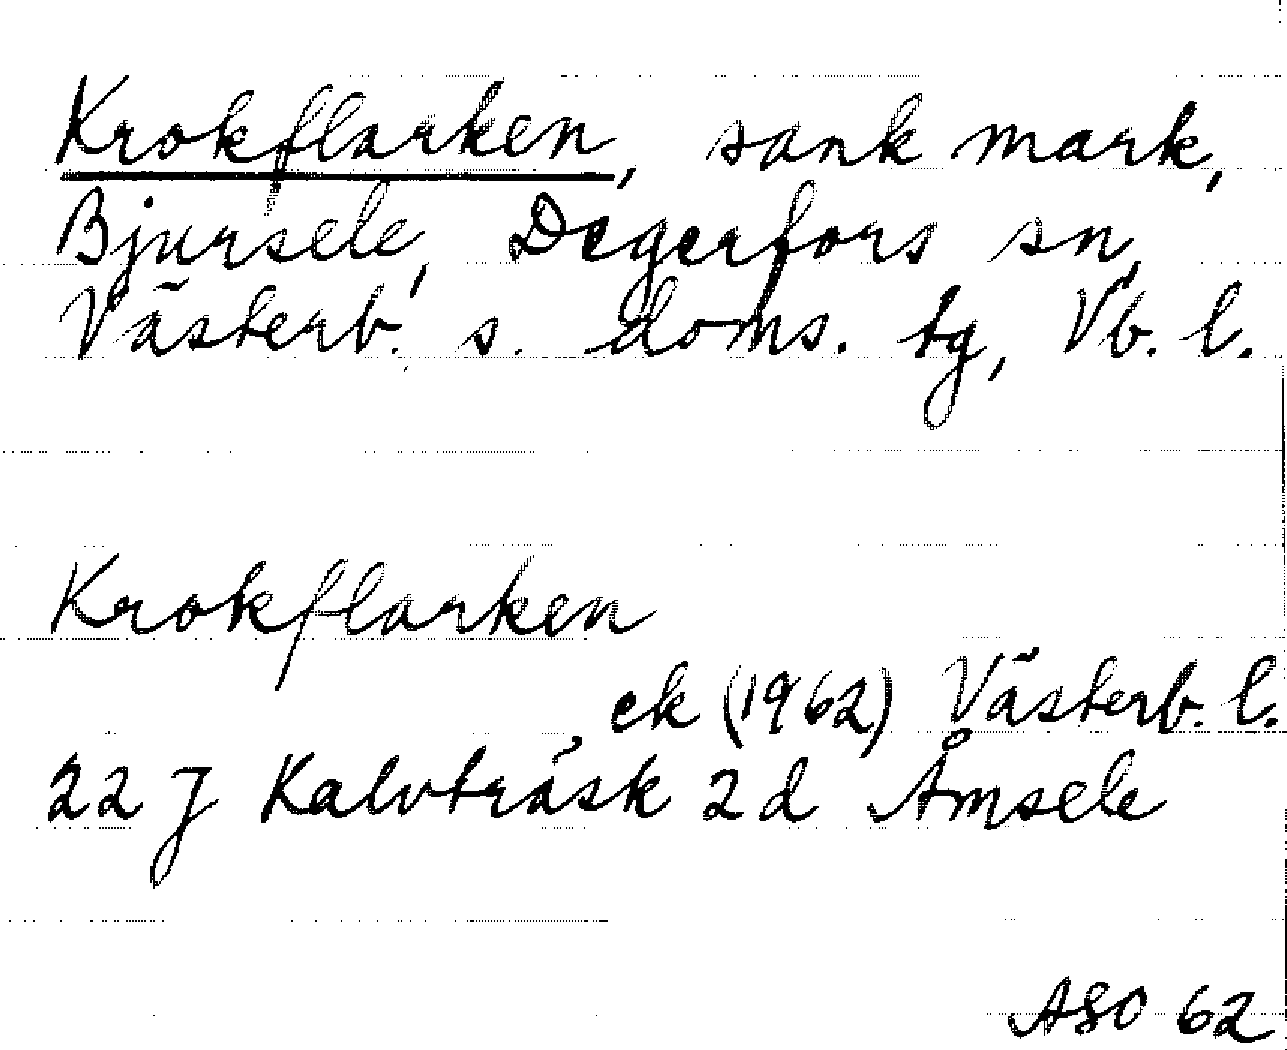 Krokflarken, sank mark,
Bjursele, Degerfors sn,
Västerb. s. doms. tg, Vb. l.
Krokflarken
ek (1962) Västerb. l.
22 J Kalvträsk 2d Åmsele
ASO 62